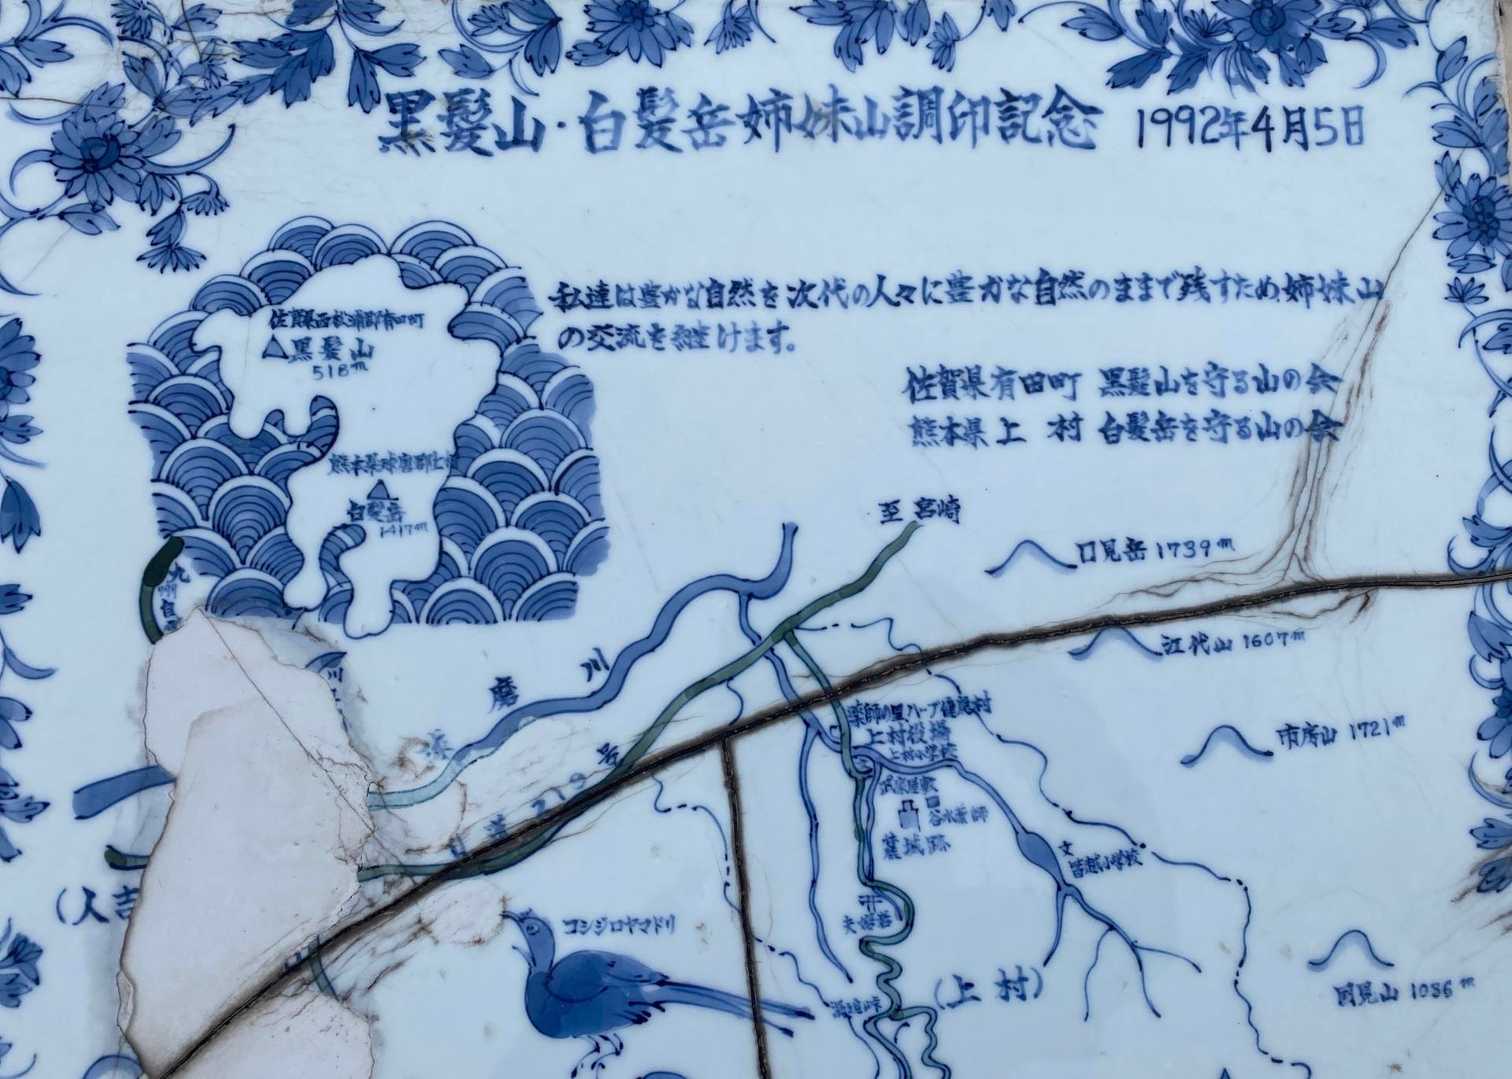 黒髪山・白髪岳姉妹山調印記念 1992年4月5日
私達は豊かな自然を次代の人々に豊かな自然のままで残すため姉妹山
の交流を続けます。
佐賀県有田町 黒髪山を守る山の会
熊本県上 村 白髪岳を守る山の会
佐賀県西松浦郡有田町
黒髪山
518m
熊本県球磨郡上村
白髪岳
1417m
至宮崎
口見岳 1739m
江代山 1607m
市房山 1721m
九州自
球磨川
219号
薬師の里ハーブ健康村
上村役場
上村小学校
武家屋敷
谷水薬師
麓城跡
文
皆越小学校
(人吉
コシジロヤマドリ
(上 村)